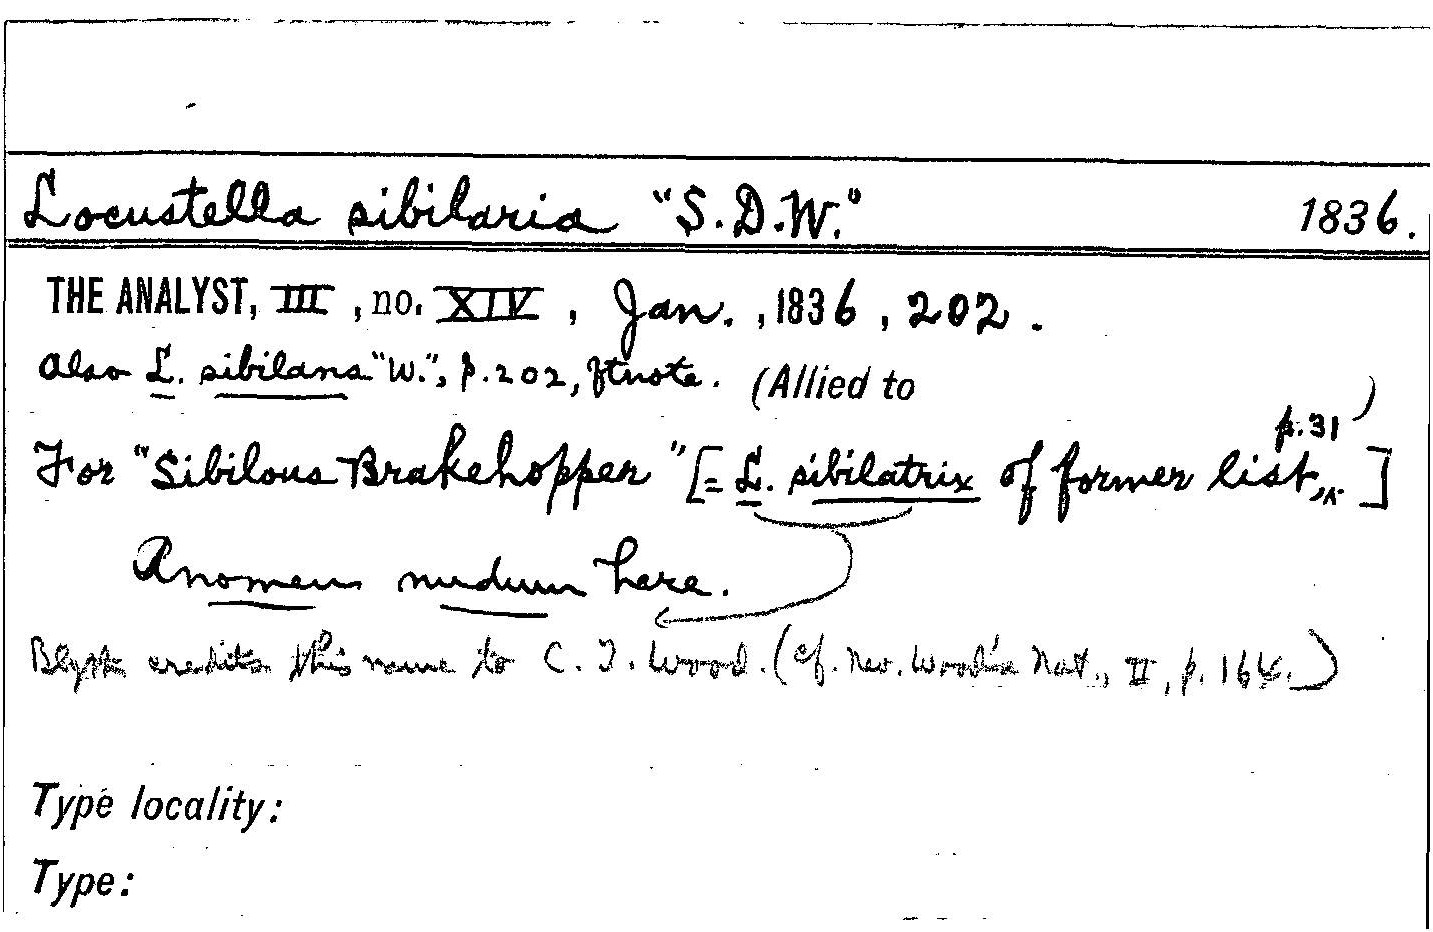 Locustella sibilaria "S.D.W." 1836.
THE ANALYST, III, no. XIV, Jan., 1836, 202.
Also L. sibilans "W.", p. 202, ftnote. (Allied to
p. 31 )
For "Sibilous Brakehopper" [= L. sibilatrix of former list, ]
A nomen nudum here.
Blyth credits this name to C. T. Wood. (cf. Nev. Wood's Nat., II, p. 164.)
Type locality:
Type: